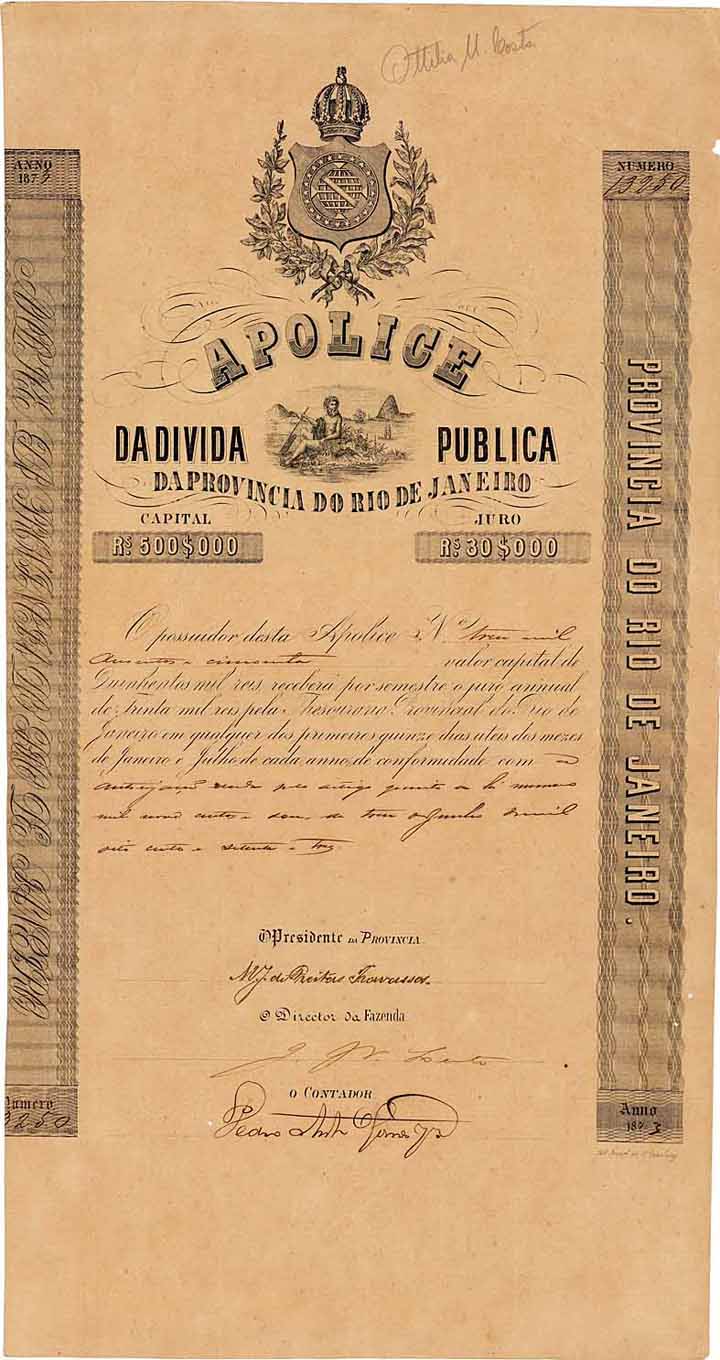 Ottilia M. Costa
ANNO
1873
NUMERO
13250
APOLICE
DA DIVIDA PUBLICA
DA PROVINCIA DO RIO DE JANEIRO
CAPITAL
JURO
Rs. 500$000
Rs. 30$000
PROVINCIA DO RIO DE JANEIRO.
O possuidor desta Apolice N.o treze mil
duzentos e cincoenta valor capital de
Quinhentos mil reis, receberá por semestre o juro annual
de trinta mil reis pela Thesouraria Provincial do Rio de
Janeiro em qualquer dos primeiros quinze dias uteis dos mezes
de Janeiro e Julho de cada anno, de conformidade com a
autorisação dada pelo artigo quinto da lei numero
mil nove centos e de Junho de mil
oito centos e setenta e tres
O Presidente DA PROVINCIA
M J. de Freitas Travassos
O Director da Fazenda
O CONTADOR
Pedro Gomes Jr
Numero
3250
Anno
1873